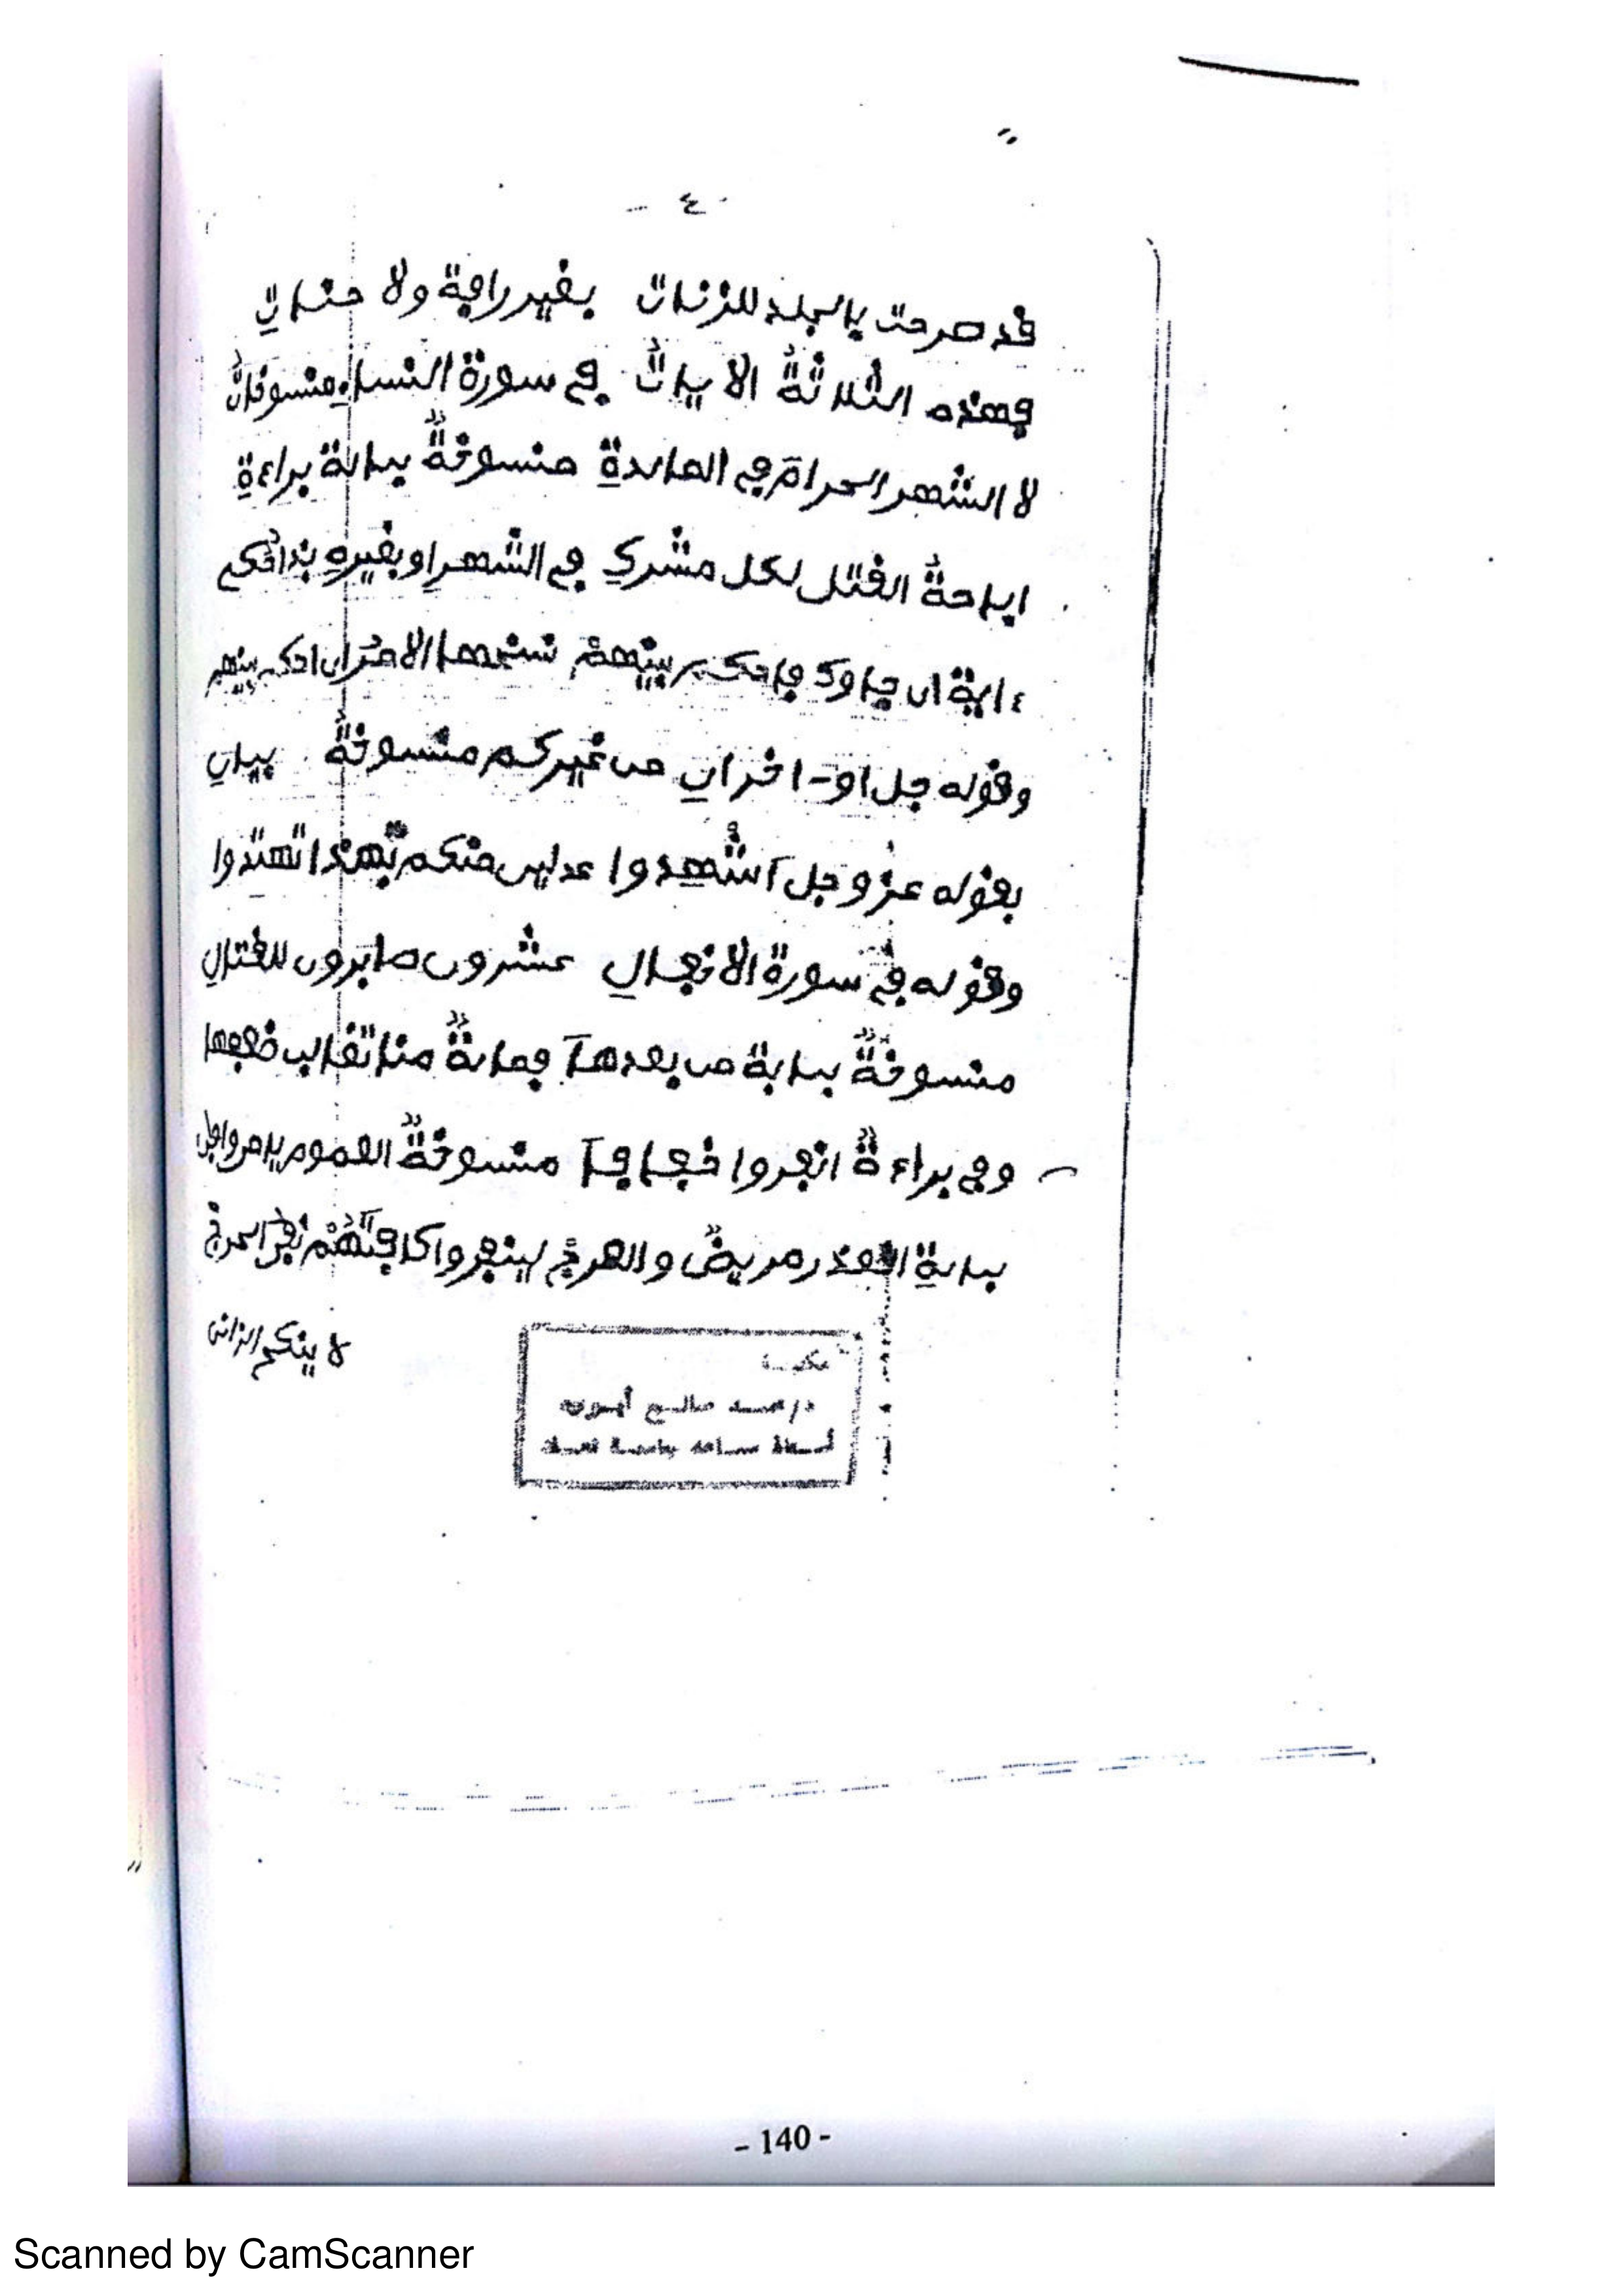 - ٤ -
قد صرحت بالجلد للزنات بغير رافة ولا حنان
فهذه الثلاثة الايات في سورة النساء منسوخات
لا الشهر الحرام في المائدة منسوخة بداية براءة
اباحة القتل لكل مشرك في الشهر او بغيره بذا احكم
ءاية ان جاوك فاحكم بينهم نسختها الاخرى ان احكم بينهم
وقوله جل او اخران من غيركم منسوخة بيان
بقوله عز وجل اشهدوا عدلين منكم تهتدوا
وقوله في سورة الانفال عشرون صابرون للقتال
منسوخة بداية من بعدها فمائة منا تغالب ضعفها
وفي براءة انفروا خفافا منسوخة العموم
بداية العذر مريض والعرج لينفروا كافة الحرج
لا ينكح الزاني
مكتبة
د/محمد صالح
أستاذ مساعد بجامعة
- 140 -
Scanned by CamScanner